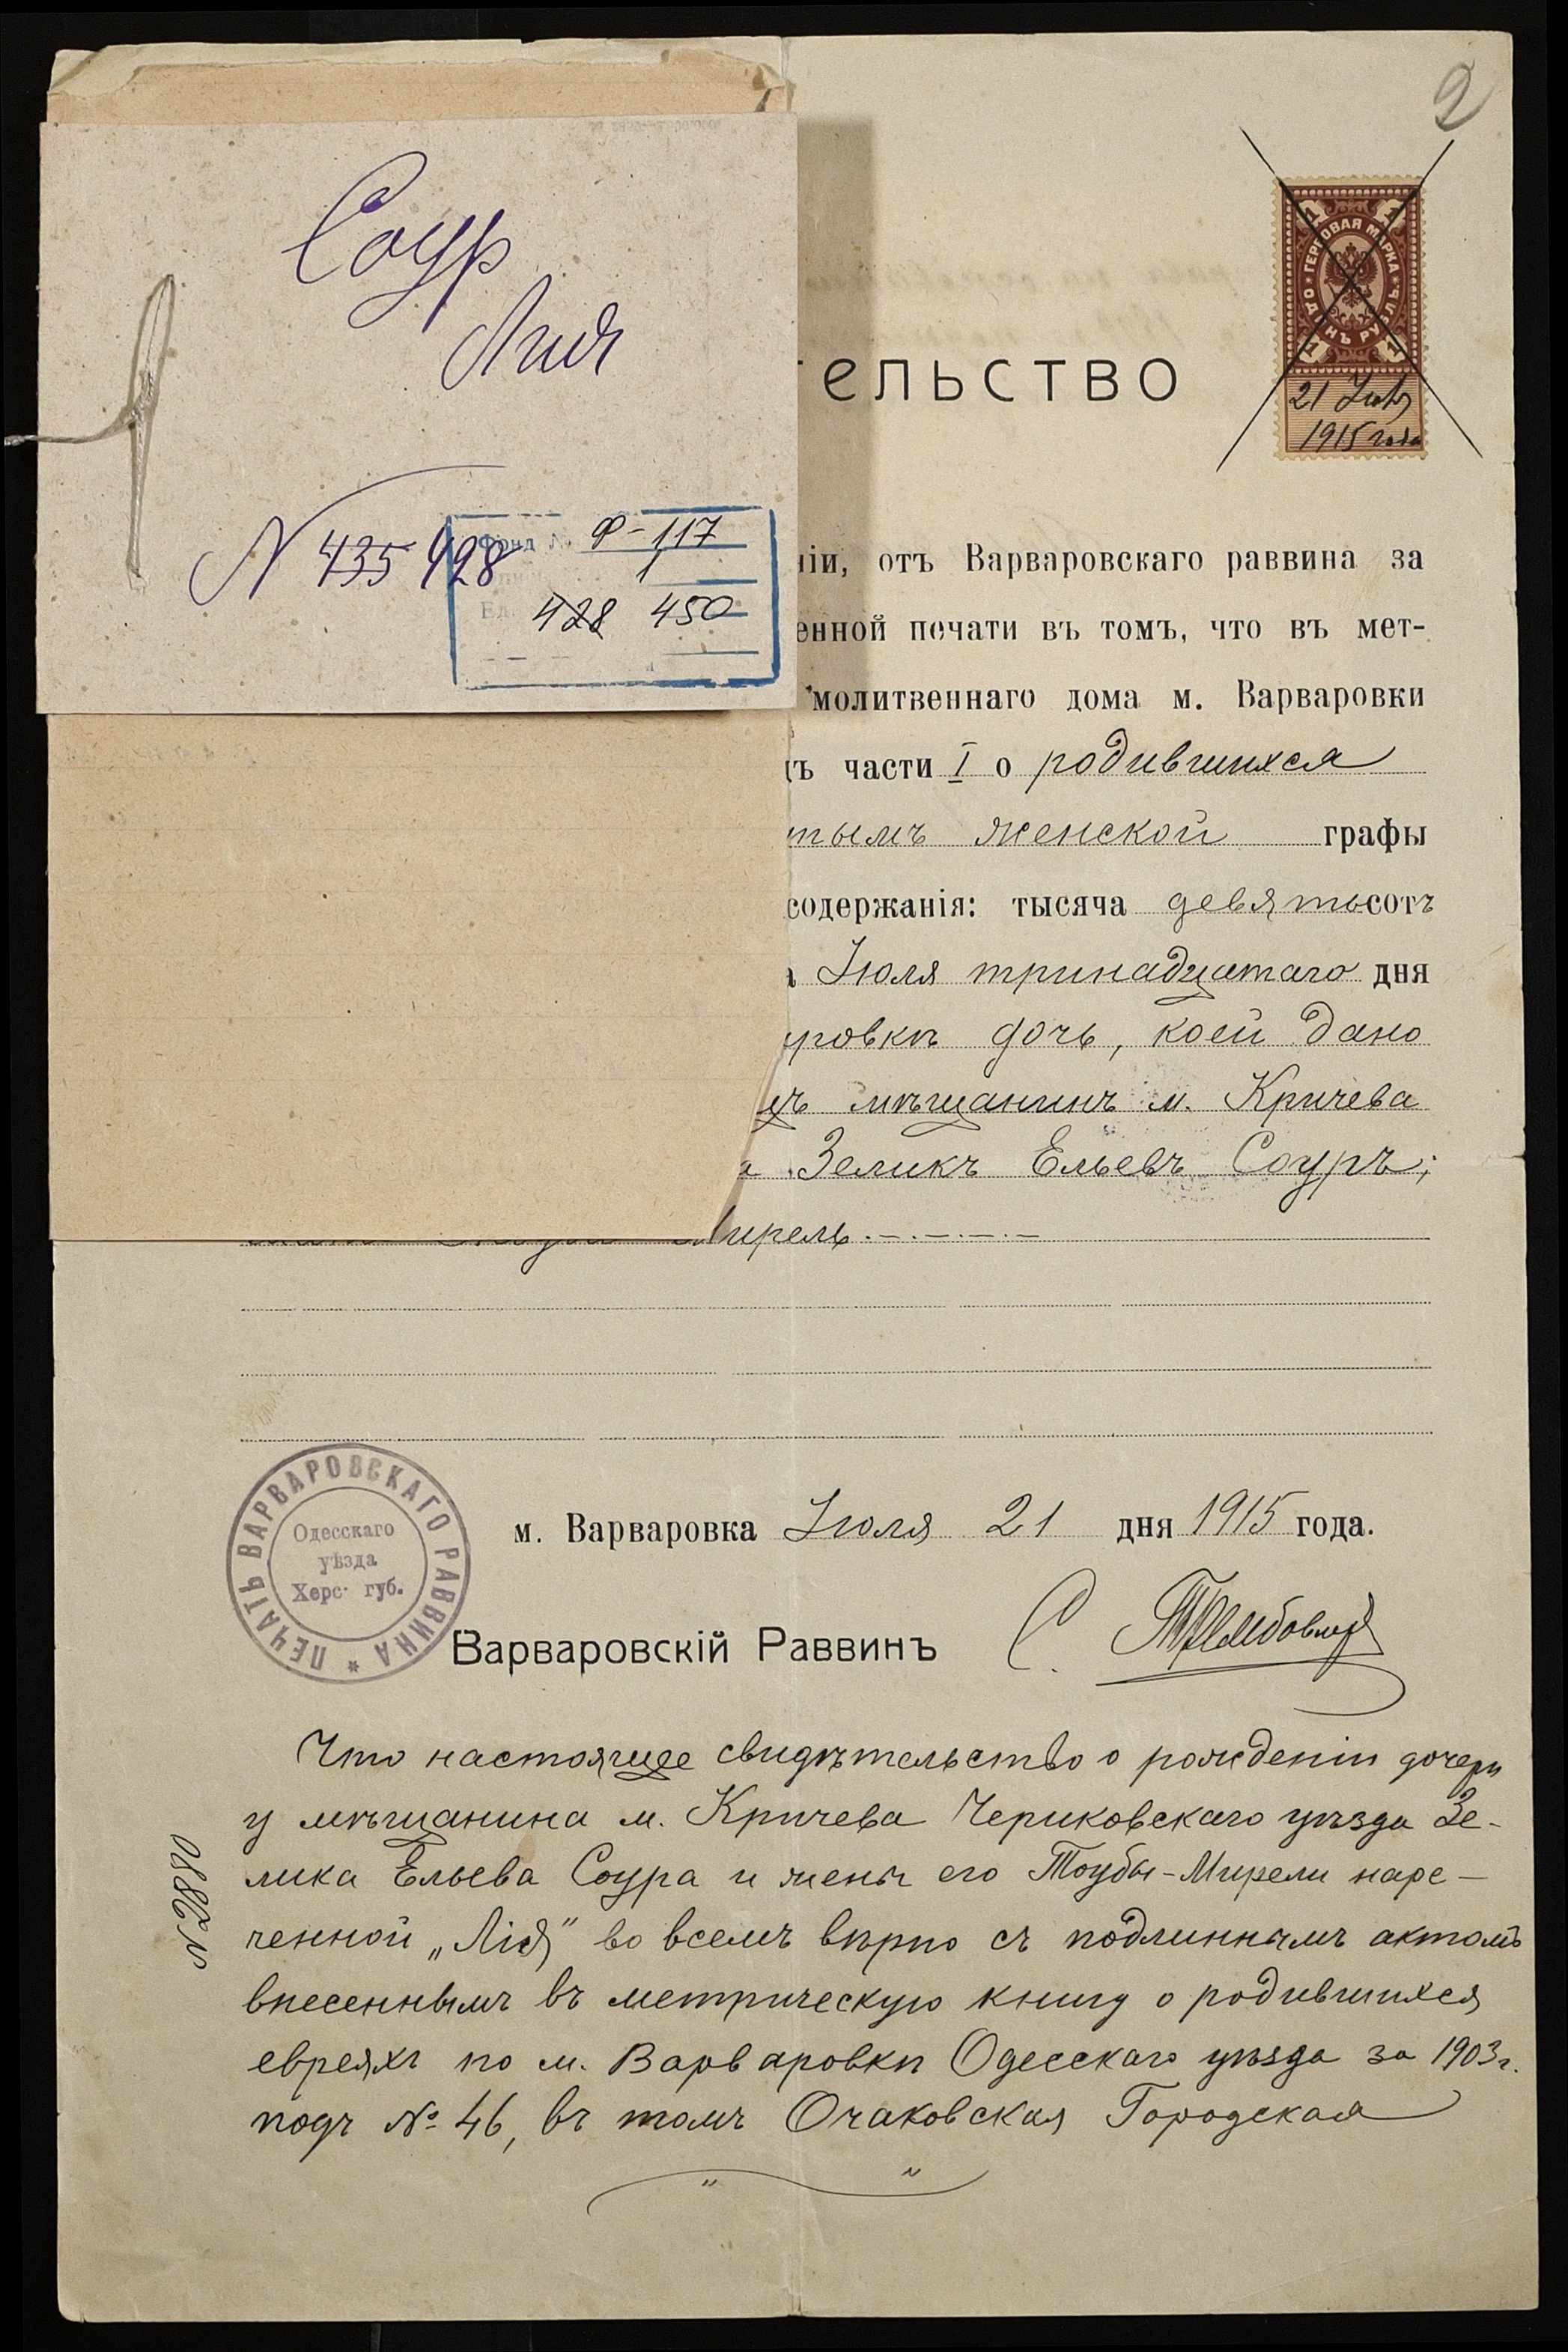 2
Соур
Лия
N 435 428
Фонд № Ф-117
1
Ед. 428 450
ГЕРБОВАЯ МАРКА
ОДИНЪ РУБЛЬ
1 1 1 1
21 Іюля
1915 года
ельство
ніи, отъ Варваровскаго раввина за
енной печати въ томъ, что въ мет-
молитвеннаго дома м. Варваровки
ъ части I о родившихся
тымъ женской графы
содержанія: тысяча девятьсотъ
Іюля тринадцатаго дня
ровкѣ дочь, коей дано
цъ мѣщанинъ м. Кричева
а Зеликъ Ельевъ Соуръ;
Мирель
ПЕЧАТЬ ВАРВАРОВСКАГО РАВВИНА *
Одесскаго
уѣзда
Херс. губ.
м. Варваровка Іюля 21 дня 1915 года.
Варваровскій Раввинъ С.
Что настоящее свидѣтельство о рожденіи дочери
у мѣщанина м. Кричева Чериковскаго уѣзда Зе-
лика Ельева Соура и жены его Тоубы-Мирели наре-
ченной „Лія" во всемъ вѣрно съ подлиннымъ актомъ
внесеннымъ въ метрическую книгу о родившихся
евреяхъ по м. Варваровкѣ Одесскаго уѣзда за 1903 г.
подъ № 46, въ томъ Очаковская Городская
N 2880